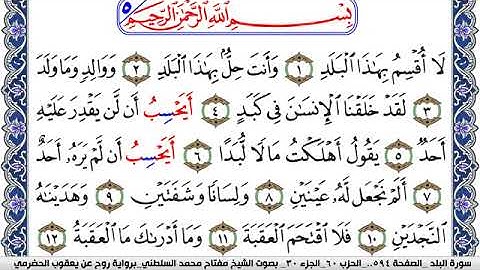 بِسْمِ ٱللَّهِ ٱلرَّحْمَٰنِ ٱلرَّحِيمِ ٥
لَآ أُقْسِمُ بِهَٰذَا ٱلْبَلَدِ ١ وَأَنتَ حِلُّۢ بِهَٰذَا ٱلْبَلَدِ ٢ وَوَالِدٍ وَمَا وَلَدَ
٣ لَقَدْ خَلَقْنَا ٱلْإِنسَٰنَ فِي كَبَدٍ ٤ أَيَحْسِبُ أَن لَّن يَقْدِرَ عَلَيْهِ
أَحَدٌ ٥ يَقُولُ أَهْلَكْتُ مَالًا لُّبَدًا ٦ أَيَحْسِبُ أَن لَّمْ يَرَهُۥٓ أَحَدٌ
٧ أَلَمْ نَجْعَل لَّهُۥ عَيْنَيْنِ ٨ وَلِسَانًا وَشَفَتَيْنِ ٩ وَهَدَيْنَٰهُ
ٱلنَّجْدَيْنِ ١٠ فَلَا ٱقْتَحَمَ ٱلْعَقَبَةَ ١١ وَمَآ أَدْرَىٰكَ مَا ٱلْعَقَبَةُ ١٢
سورة البلد _ الصفحة ٥٩٤_ الحزب ٦٠_الجزء ٣٠_ بصوت الشيخ مفتاح محمد السلطني_برواية روح عن يعقوب الحضرمي